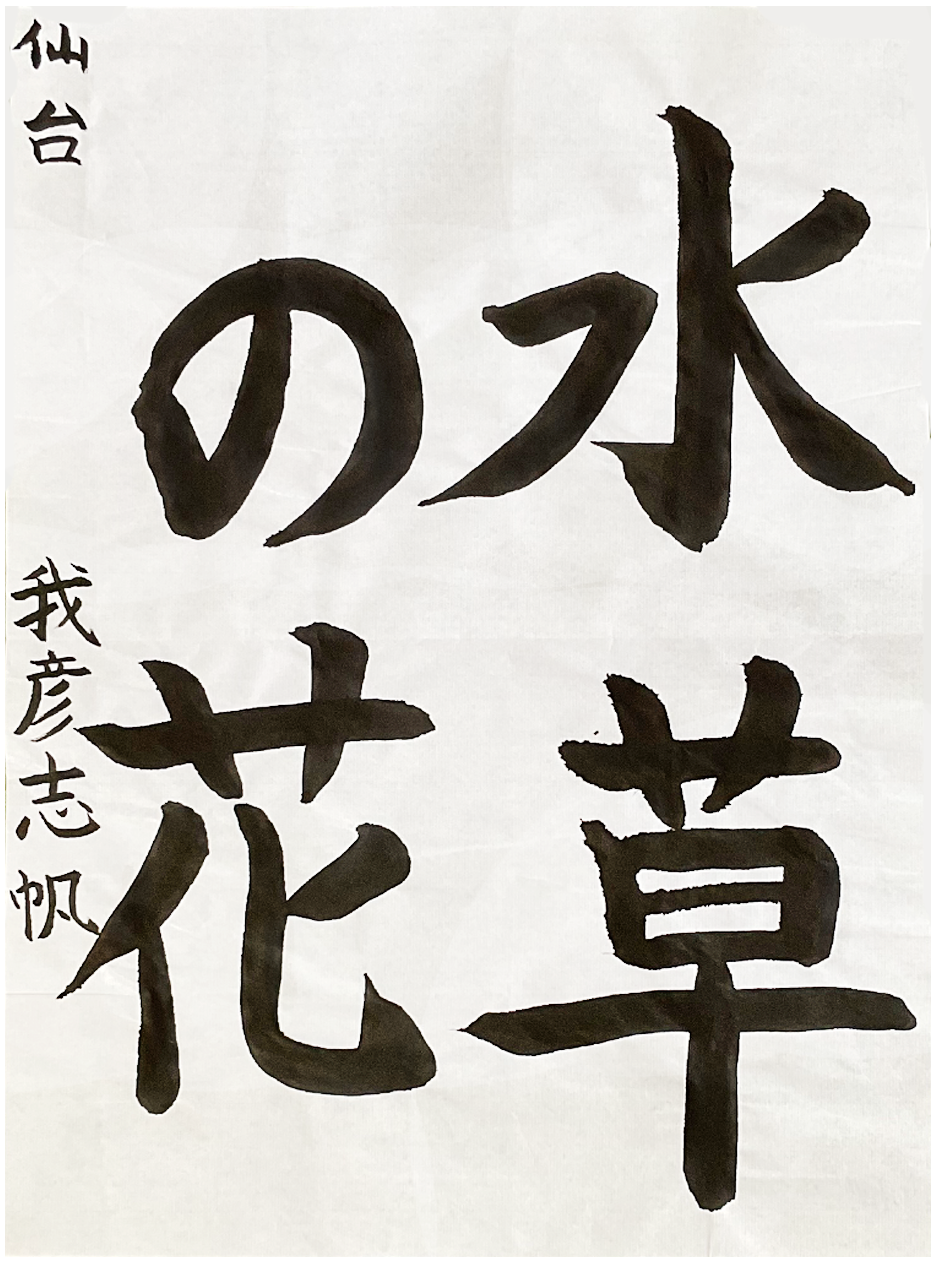 水草
の花
仙台 我彦志帆